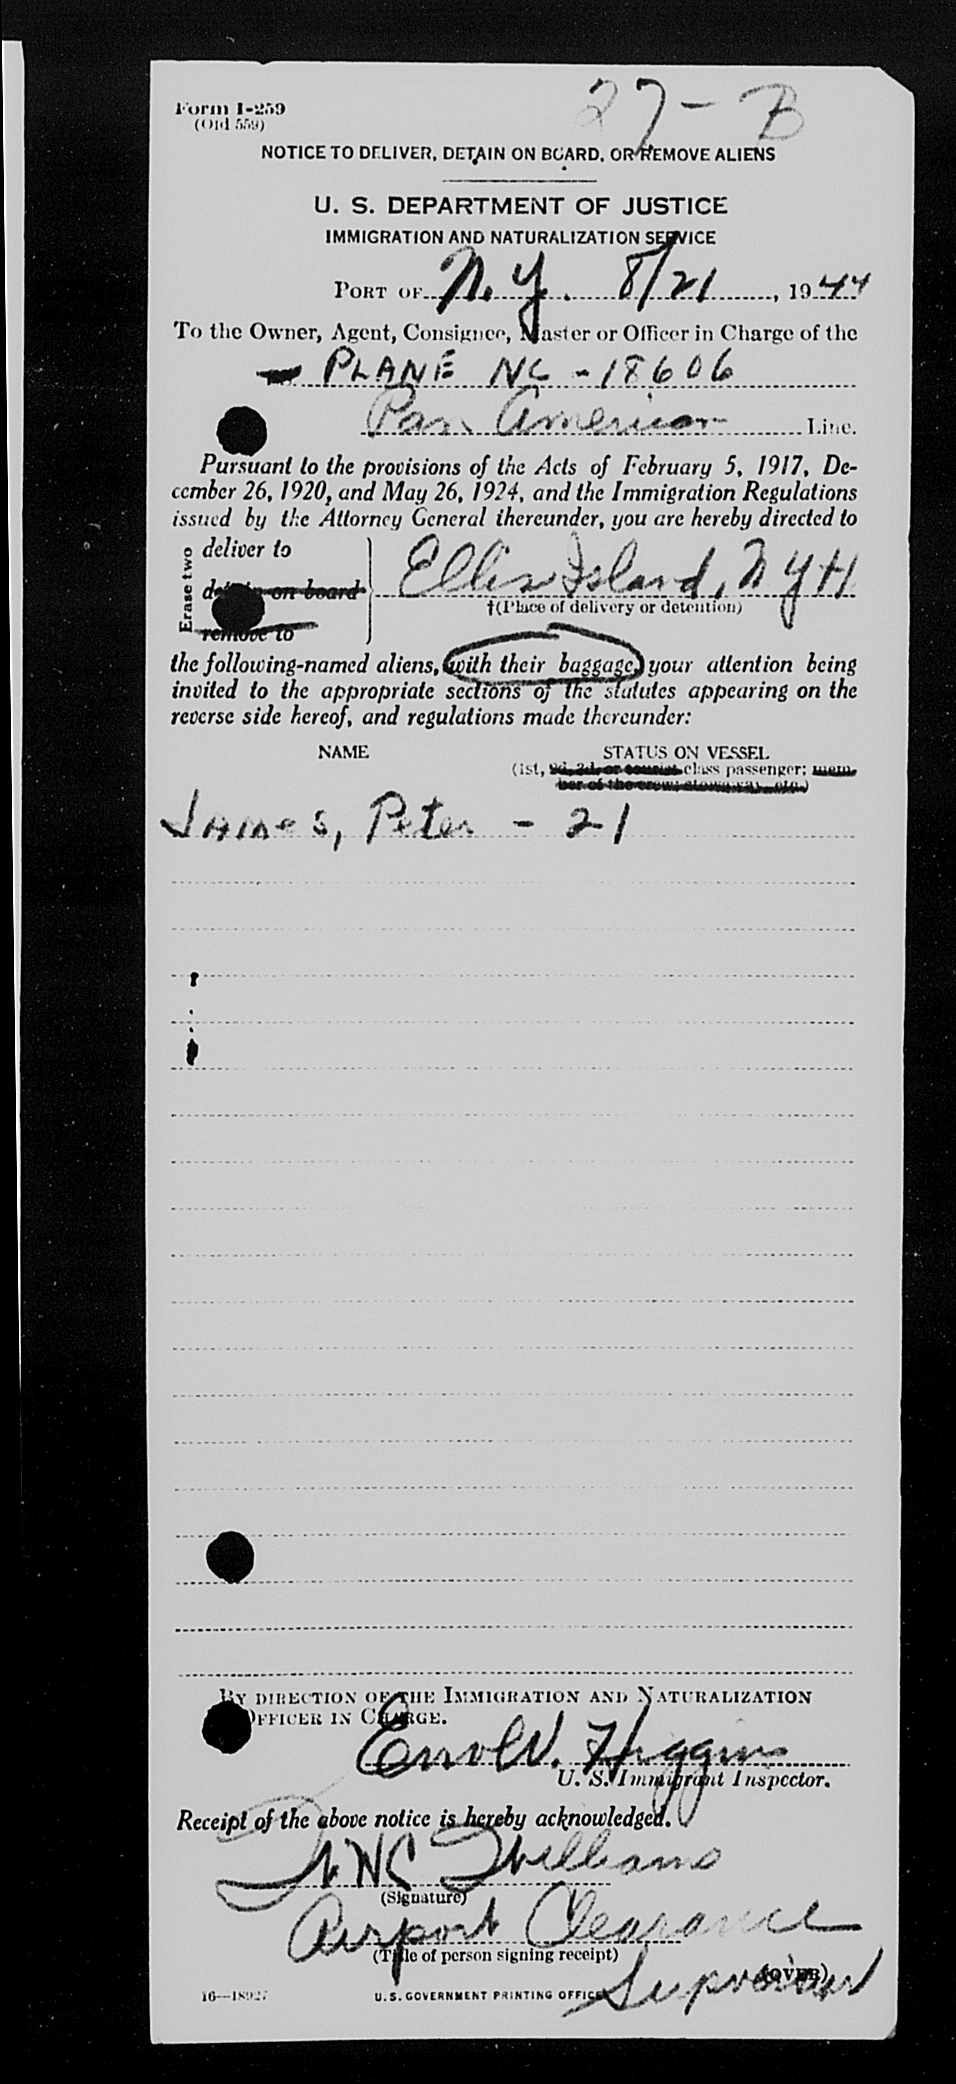 Form I-259
(Old 559)
27-B
NOTICE TO DELIVER, DETAIN ON BOARD, OR REMOVE ALIENS
U. S. DEPARTMENT OF JUSTICE
IMMIGRATION AND NATURALIZATION SERVICE
PORT OF N.Y. 8/21, 1944
To the Owner, Agent, Consignee, Master or Officer in Charge of the
PLANE NC-18606
Pan American Line.
Pursuant to the provisions of the Acts of February 5, 1917, De-
cember 26, 1920, and May 26, 1924, and the Immigration Regulations
issued by the Attorney General thereunder, you are hereby directed to
Erase two
deliver to
detain on board
remove to
Ellis Island, NYH
†(Place of delivery or detention)
the following-named aliens, with their baggage, your attention being
invited to the appropriate sections of the statutes appearing on the
reverse side hereof, and regulations made thereunder:
NAME STATUS ON VESSEL
(1st, 2d, 3d, or tourist class passenger; mem-
ber of the crew; stowaway, etc.)
James, Peter - 21
BY DIRECTION OF THE IMMIGRATION AND NATURALIZATION
OFFICER IN CHARGE.
Errol W. Higgins
U. S. Immigrant Inspector.
Receipt of the above notice is hereby acknowledged.
Williams
(Signature)
Airport Clearance
(Title of person signing receipt)
Supervisor
(OVER)
16—18927 U.S. GOVERNMENT PRINTING OFFICE